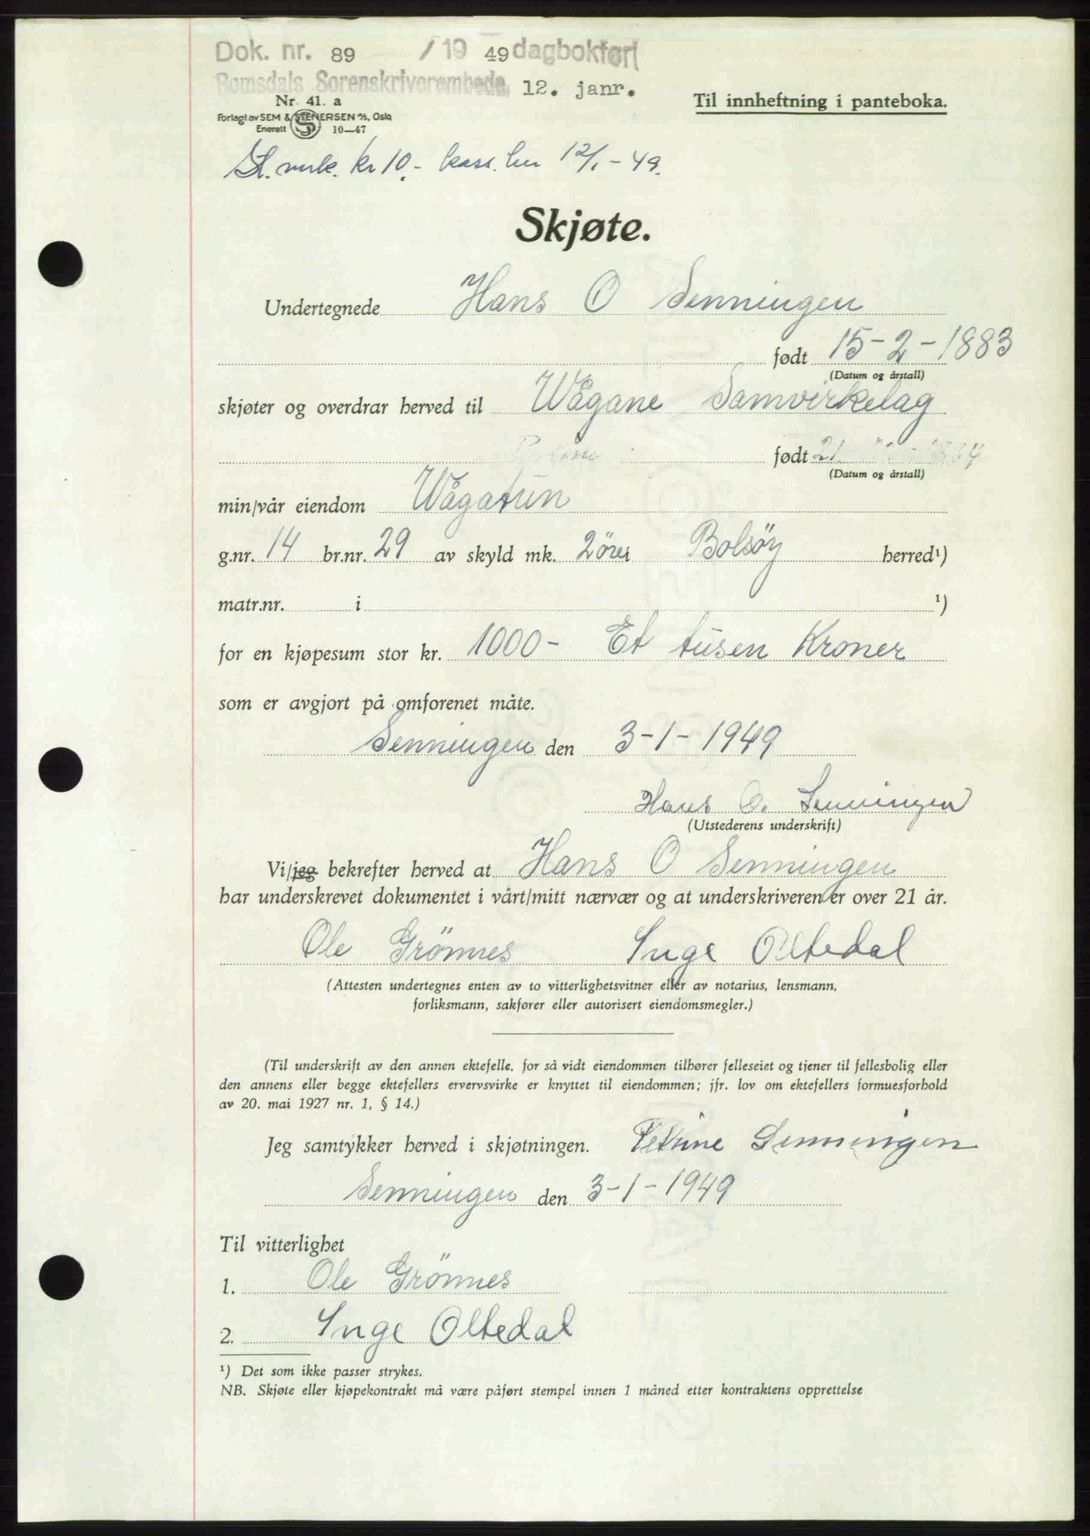 Dok. nr. 89 /19 49 dagbokført
Romsdals Sorenskriverembede 12. janr.
Nr. 41. a
Til innheftning i panteboka.
Forlagt av SEM & STENERSEN A/S, Oslo
Enerett 10—47
St. merk. kr 10,- kass. her 12/1-49.
Skjøte.
Undertegnede Hans O Senningen
født 15-2-1883
(Datum og årstall)
skjøter og overdrar herved til Wågane Samvirkelag
født 21
(Datum og årstall)
min/vår eiendom Wågatun
g.nr. 14 br.nr. 29 av skyld mk. 2 öre i Bolsöy herred¹)
matr.nr. i ¹)
for en kjøpesum stor kr. 1000- Et tusen Kroner
som er avgjort på omforenet måte.
Senningen den 3-1-1949
Hans O. Senningen
(Utstederens underskrift)
Vi/jeg bekrefter herved at Hans O Senningen
har underskrevet dokumentet i vårt/mitt nærvær og at underskriveren er over 21 år.
Ole Grönnes Inge Oltedal
(Attesten undertegnes enten av to vitterlighetsvitner eller av notarius, lensmann,
forliksmann, sakfører eller autorisert eiendomsmegler.)
(Til underskrift av den annen ektefelle, for så vidt eiendommen tilhører felleseiet og tjener til fellesbolig eller
den annens eller begge ektefellers ervervsvirke er knyttet til eiendommen; jfr. lov om ektefellers formuesforhold
av 20. mai 1927 nr. 1, § 14.)
Jeg samtykker herved i skjøtningen. Petrine Senningen
Senningen den 3-1-1949
Til vitterlighet
1. Ole Grönnes
2. Inge Oltedal
¹) Det som ikke passer strykes.
NB. Skjøte eller kjøpekontrakt må være påført stempel innen 1 måned etter kontraktens opprettelse